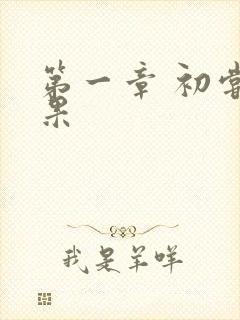 第一章 初尝
果
我是羊咩